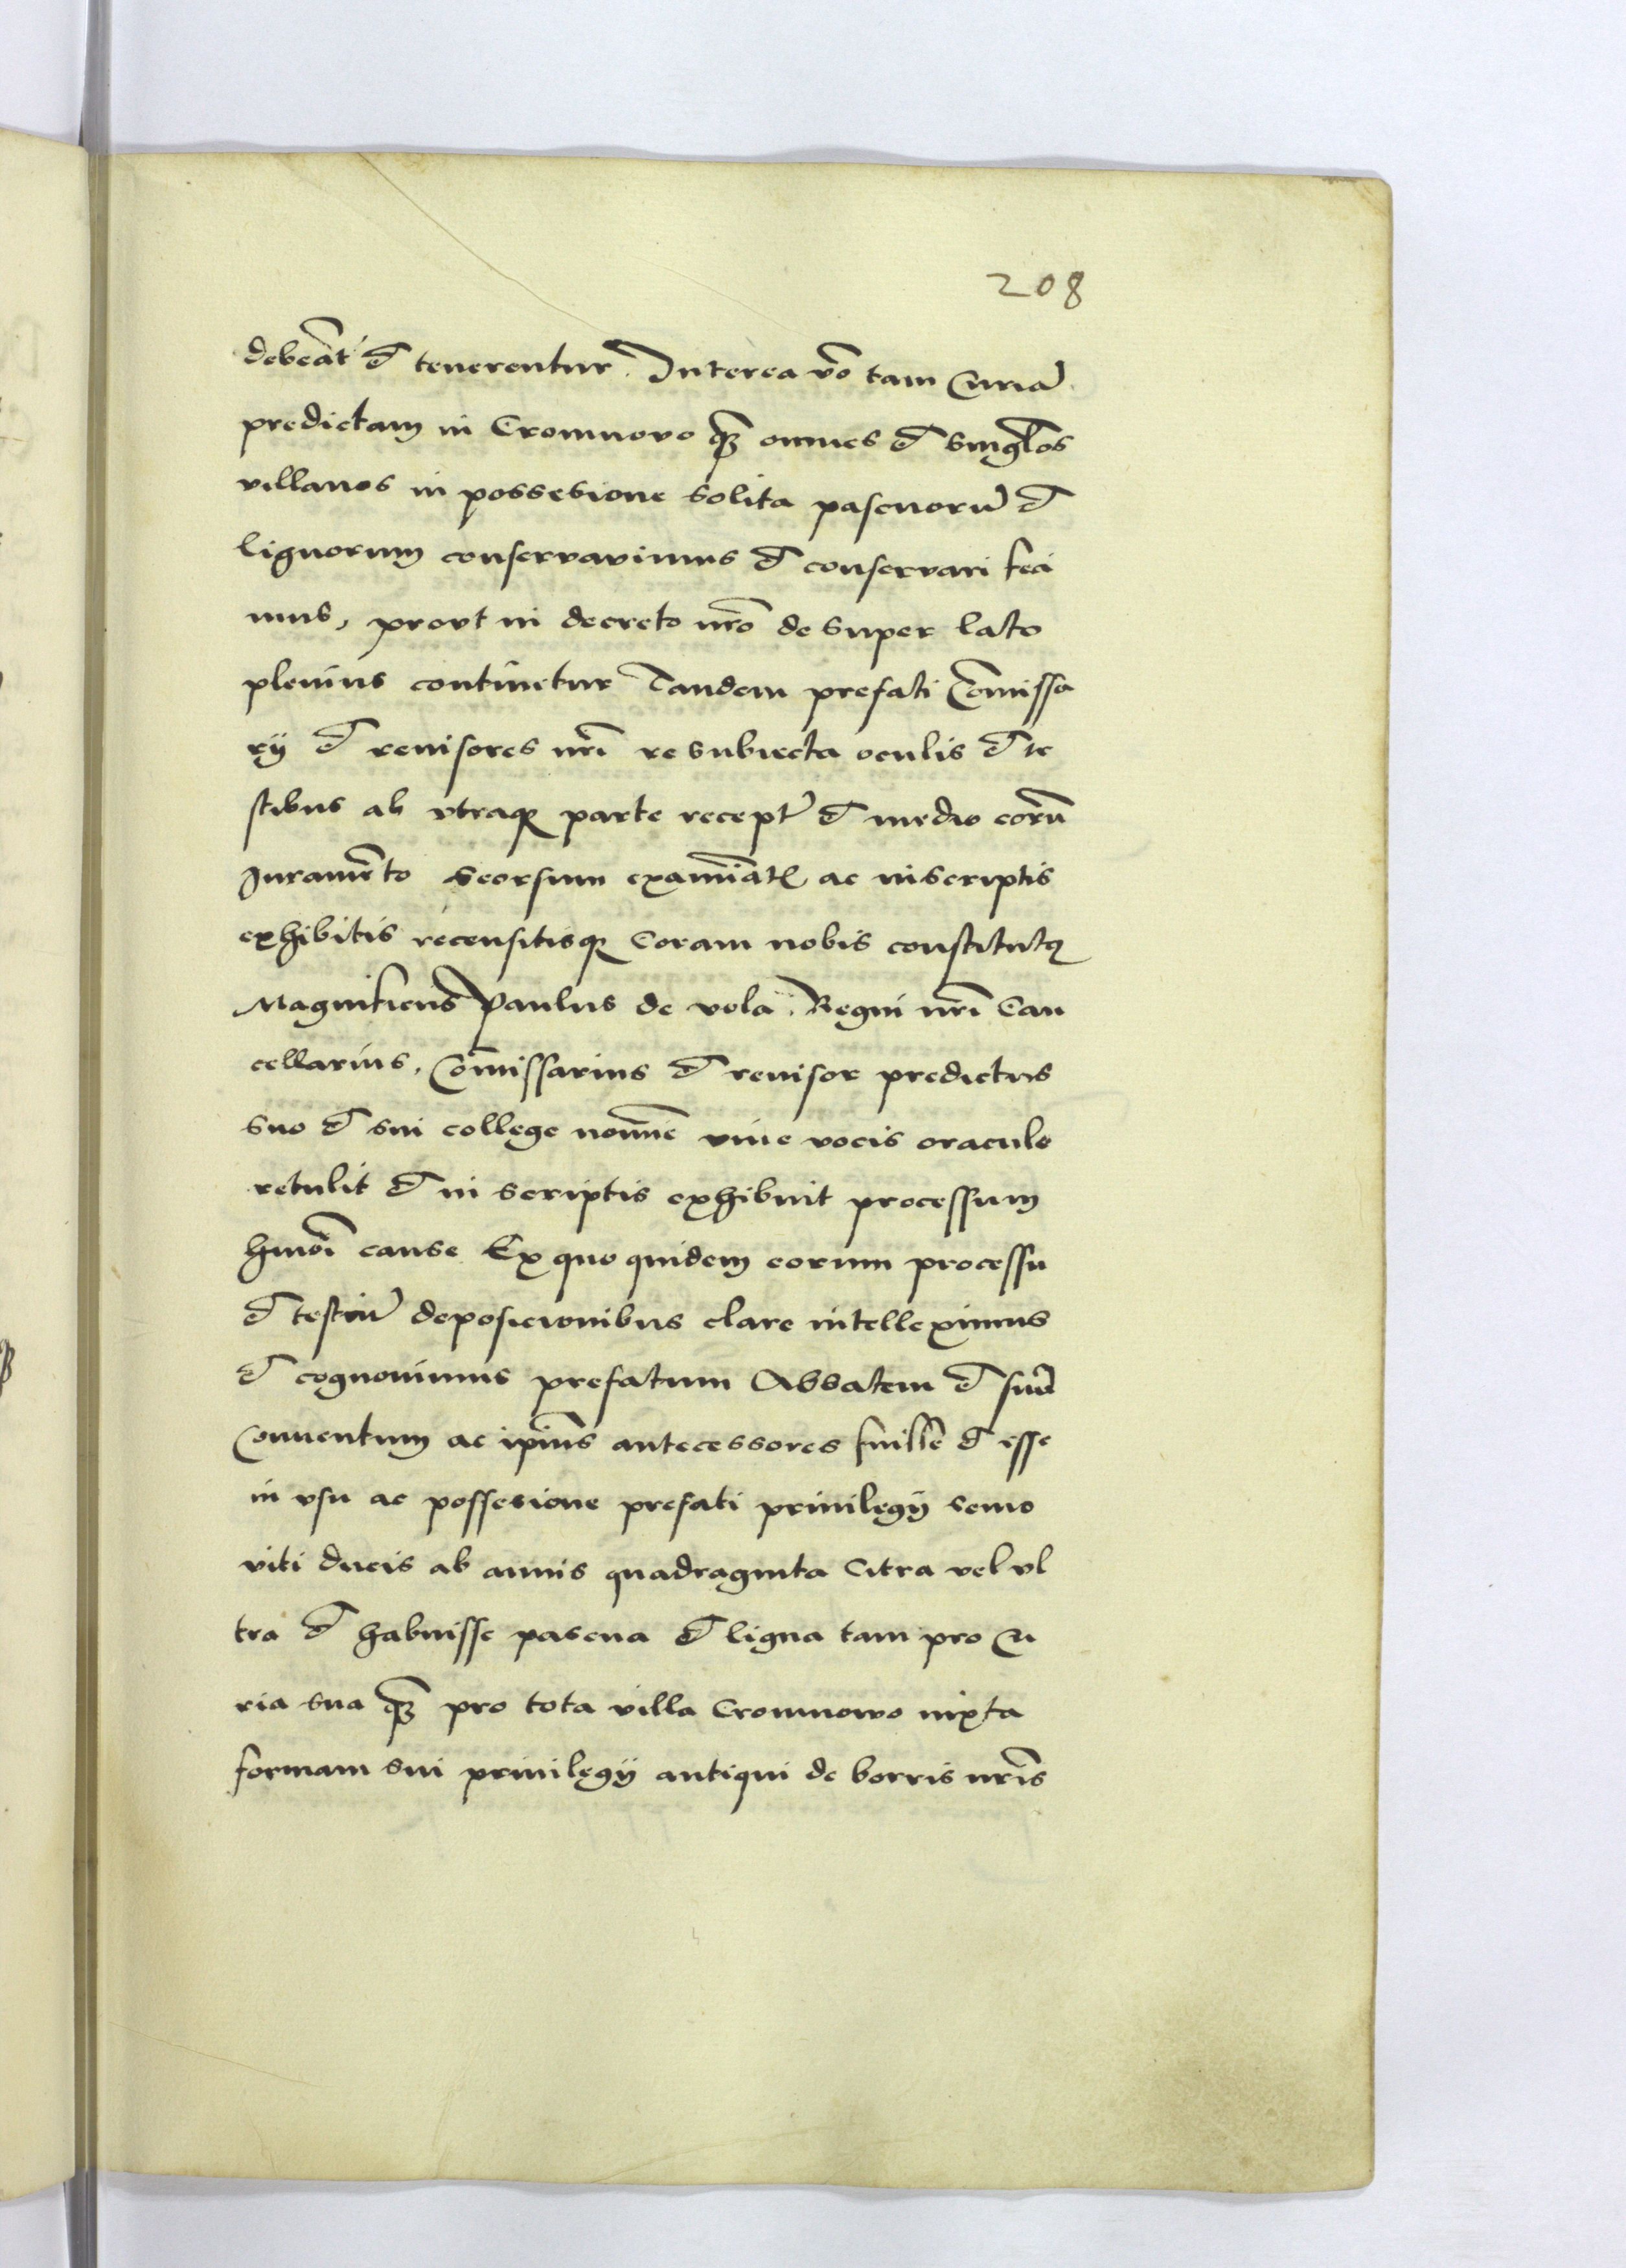 208
debeāt et tenerentur. Interea v̄o tam Curiā
predictam in Cromnovo q̄ȝ omnes et singłos
villanos in possesione solita pascuorū et
lignorum conservavimus et conservari feci
mus, prout in decreto nr̄o de super lato
plenius continetur Tandem prefati Com̄issa
rij et reuisores nr̄i re subiecta oculis et te
stibus ab vtraqȝ parte recept̄ et medio eorū
Juramēto seorsum examinat̄ ac inscriptis
exhibitis recensitisqȝ Coram nobis constitutꝰ
Magnificus Paulus de vola. Regni nr̄i Can
cellarius, Com̄issarius et reuisor predictus
suo et sui college noīne viue vocis oraculo
retulit et in scriptis exhibuit processum
hmōi cause Ex quo quidem eorum processu
et testiū deposicionibus clare intelleximus
et cognouimus prefatum Abbatem et suū
Conuentum ac ip̄ius antecessores fuisse et esse
in vsu ac possesione prefati priuilegij semo
viti ducis ab annis quadraginta Citra vel vl
tra et habuisse pascua et ligna tam pro Cu
ria sua q̄ȝ pro tota villa Cromnowo iuxta
formam sui priuilegij antiqui de borris nr̄is